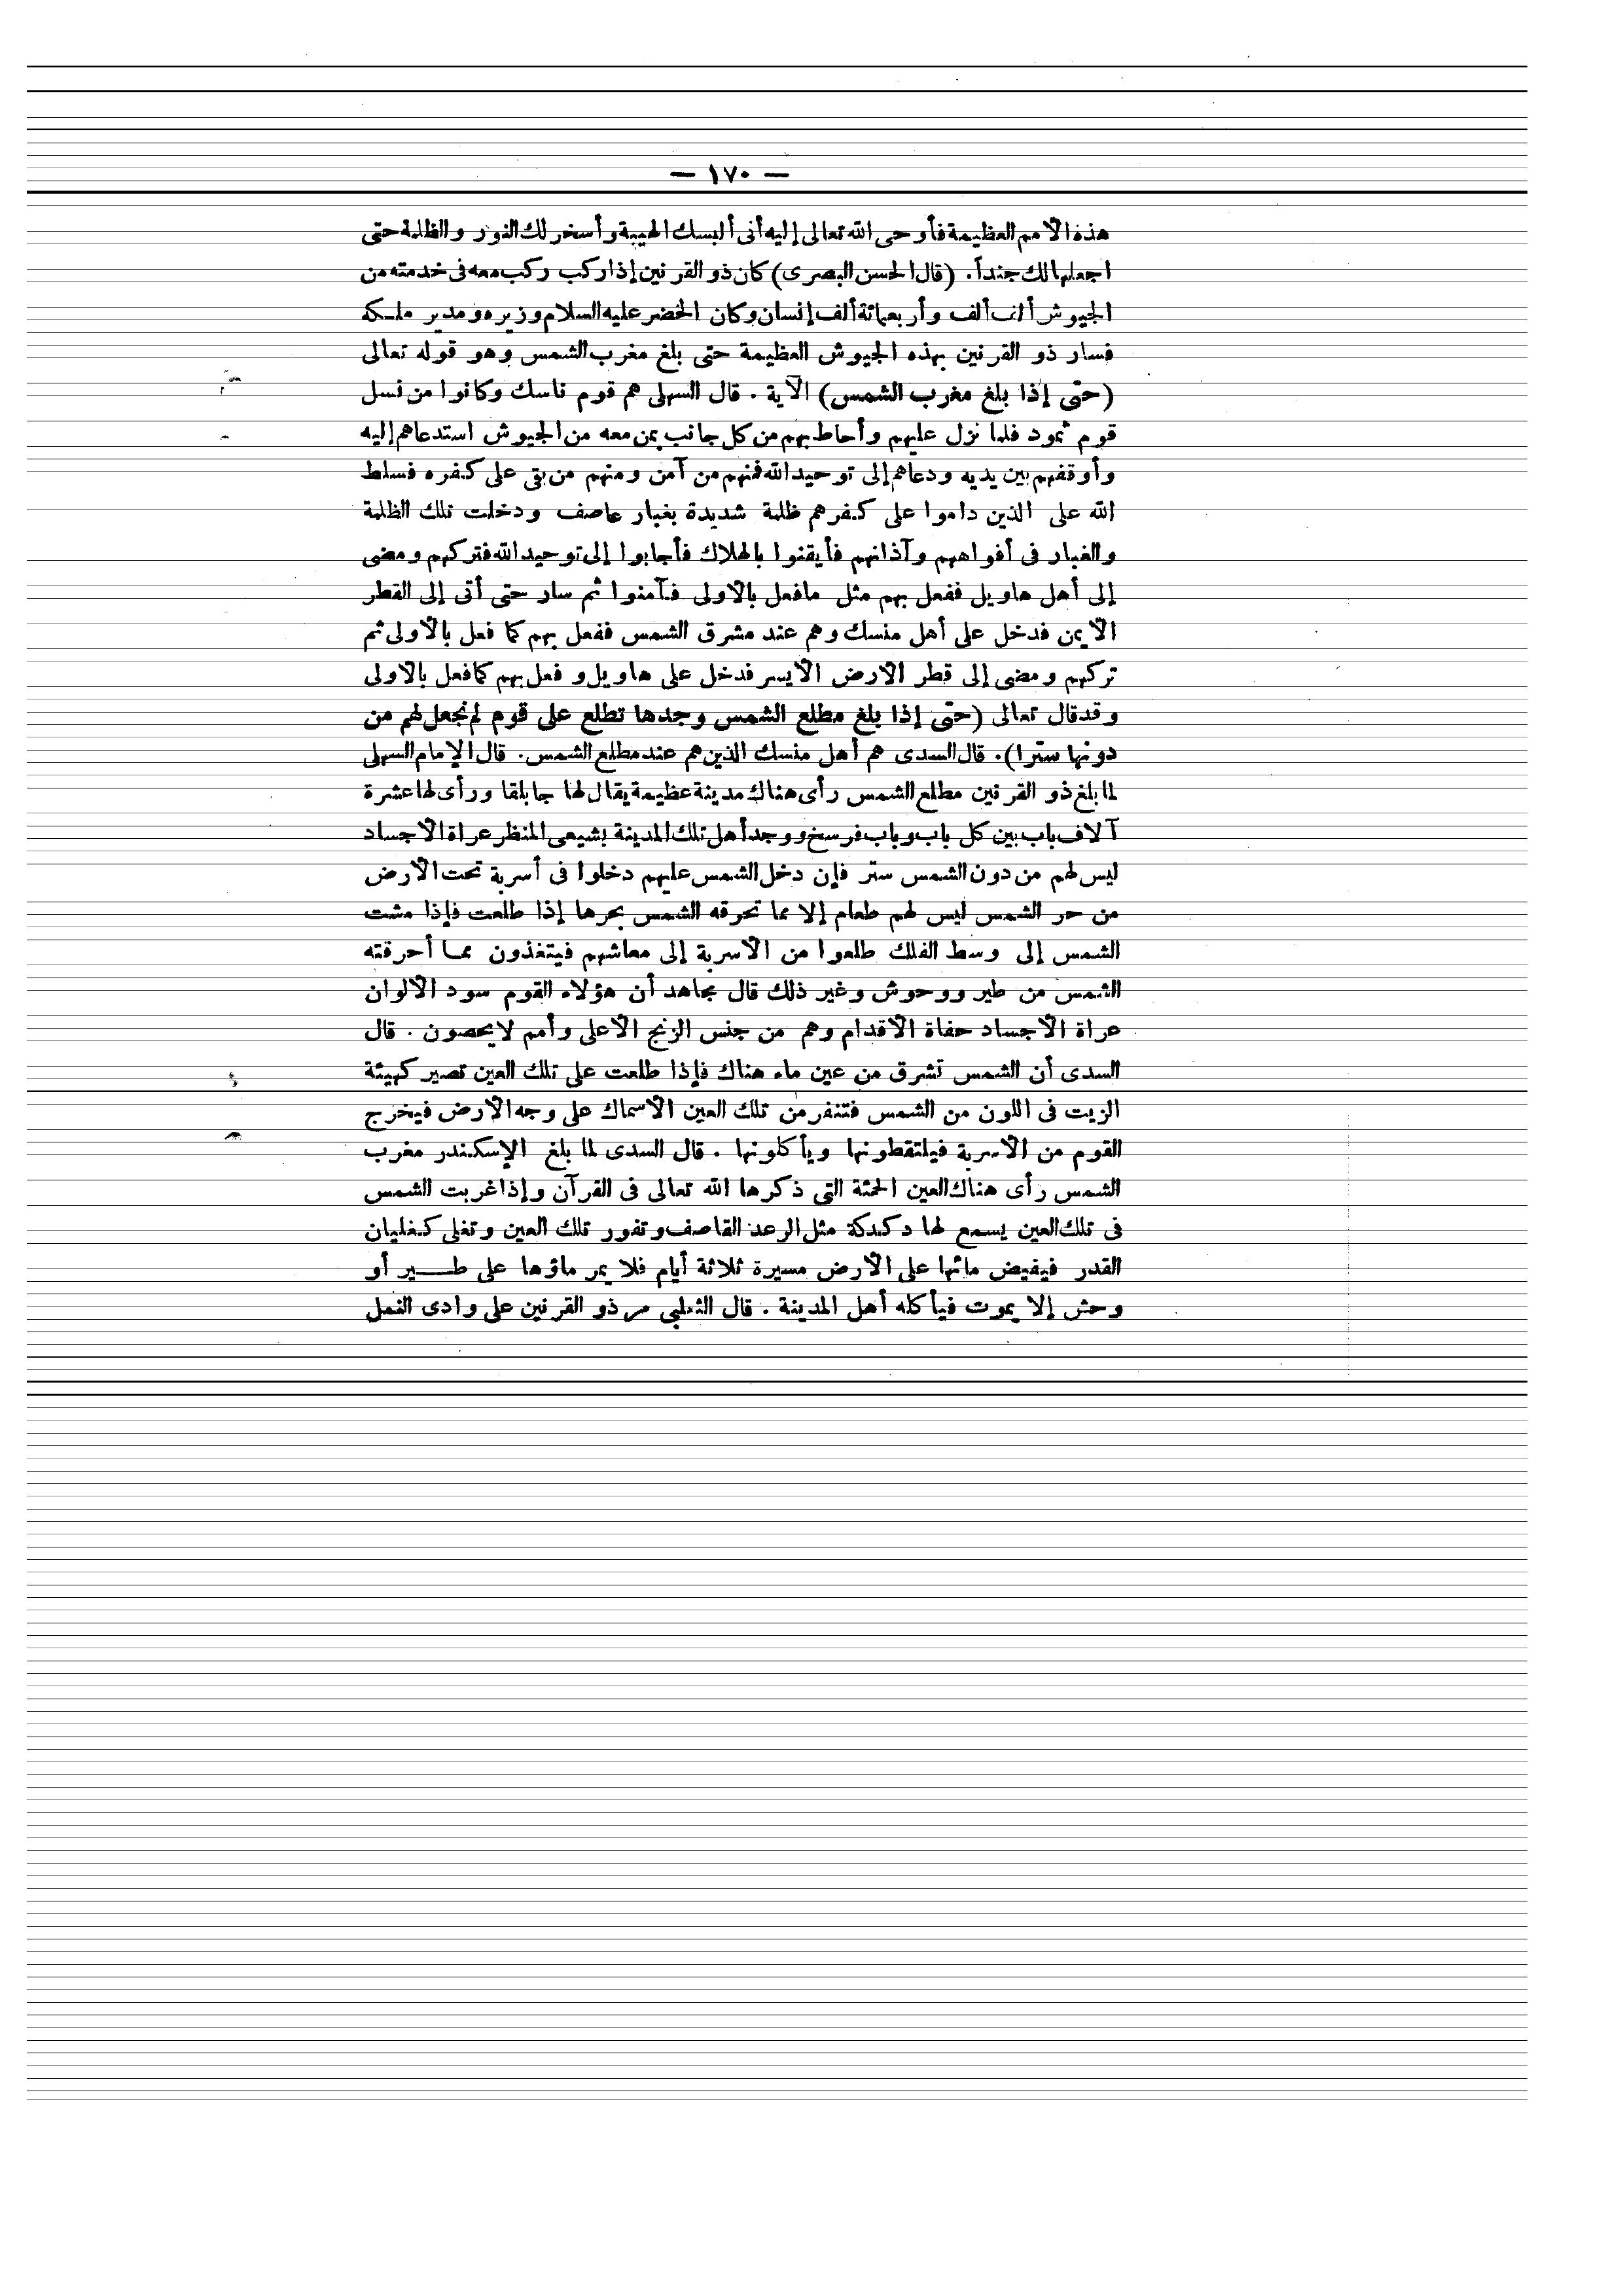 — ١٧٠ —
هذه الأمم العظيمة فأوحى الله تعالى إليه أنى ألبسك الهيبة وأسخر لك النور والظلمة حتى
اجعلها لك جنداً. (قال الحسن البصرى) كان ذو القرنين إذا ركب ركب معه فى خدمته من
الجيوش ألف ألف وأربعمائة ألف إنسان وكان الخضر عليه السلام وزيره ومدير ملكه
فسار ذو القرنين بهذه الجيوش العظيمة حتى بلغ مغرب الشمس وهو قوله تعالى
(حتى إذا بلغ مغرب الشمس) الآية. قال السهيلى هم قوم ناسك وكانوا من نسل
قوم ثمود فلما نزل عليهم وأحاط بهم من كل جانب بمن معه من الجيوش استدعاهم إليه
وأوقفهم بين يديه ودعاهم إلى توحيد الله فمنهم من آمن ومنهم من بقى على كفره فسلط
الله على الذين داموا على كفرهم ظلمة شديدة بغبار عاصف ودخلت تلك الظلمة
والغبار فى أفواههم وآذانهم فأيقنوا بالهلاك فأجابوا إلى توحيد الله فتركهم ومضى
إلى أهل هاويل ففعل بهم مثل مافعل بالاولى فآمنوا ثم سار حتى أتى إلى القطر
الايمن فدخل على أهل منسك وهم عند مشرق الشمس ففعل بهم كما فعل بالاولى ثم
تركهم ومضى إلى قطر الارض الايسر فدخل على هاويل وفعل بهم كما فعل بالاولى
وقد قال تعالى (حتى إذا بلغ مطلع الشمس وجدها تطلع على قوم لم نجعل لهم من
دونها سترا). قال السدى هم أهل منسك الذين هم عند مطلع الشمس. قال الإمام السهيلى
لما بلغ ذو القرنين مطلع الشمس رأى هناك مدينة عظيمة يقال لها جابلقا ورأى لها عشرة
آلاف باب بين كل باب وباب فرسخ ووجد أهل تلك المدينة بشيعى المنظر عراة الاجساد
ليس لهم من دون الشمس ستر فإن دخل الشمس عليهم دخلوا فى أسربة تحت الارض
من حر الشمس ليس لهم طعام إلا مما تحرقه الشمس بحرها إذا طلعت فإذا مشت
الشمس إلى وسط الفلك طلعوا من الاسربة إلى معاشهم فيتغذون مما أحرقته
الشمس من طير ووحوش وغير ذلك قال مجاهد أن هؤلاء القوم سود الالوان
عراة الاجساد حفاة الاقدام وهم من جنس الزنج الاعلى وأمم لا يحصون. قال
السدى أن الشمس تشرق من عين ماء هناك فإذا طلعت على تلك العين تصير كهيئة
الزيت فى اللون من الشمس فتنفر من تلك العين الاسماك على وجه الارض فيخرج
القوم من الاسربة فيلتقطونها ويأكلونها. قال السدى لما بلغ الإسكندر مغرب
الشمس رأى هناك العين الحمئة التى ذكرها الله تعالى فى القرآن وإذا غربت الشمس
فى تلك العين يسمع لها دكدكة مثل الرعد القاصف وتفور تلك العين وتغلى كغليان
القدر فيفيض مائها على الارض مسيرة ثلاثة أيام فلا يمر ماؤها على طير أو
وحش إلا يموت فيأكله أهل المدينة. قال الثعلبى مر ذو القرنين على وادى النمل